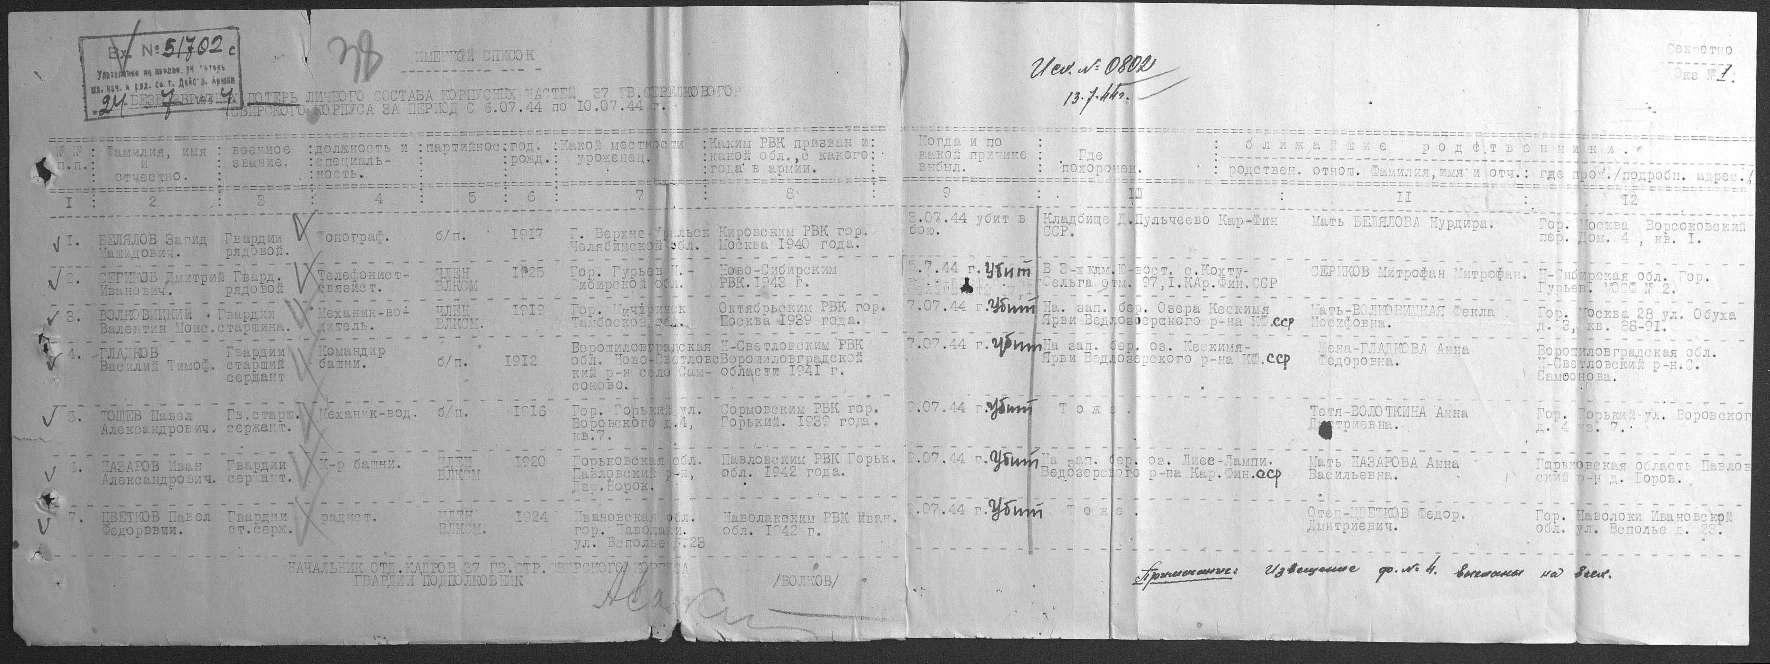 Вх № 51702 с
Секретно
Экз № 1.
ИМЕННОЙ СПИСОК
Исх. № 0802
13.7.44г.
"24" 7
ПОТЕРЬ ЛИЧНОГО СОСТАВА КОРПУСНЫХ ЧАСТЕЙ 37 ГВ.СТРЕЛКОВОГО
СВИРСКОГО КОРПУСА ЗА ПЕРИОД С 6.07.44 по 10.07.44 г.
№ № п.п. : Фамилия, имя и отчество. : военное звание. : должность и специальность. : партийнос. : год. рожд. : Какой местности уроженец. : Каким РВК призван и: какой обл., с какого: года в армии. : Когда и по какой причине выбыл. : Где похоронен. : ближайшие родственники.
родствен. относ. Фамилия, имя и отч. : где прож./подробн. адрес./
1 : 2 : 3 : 4 : 5 : 6 : 7 : 8 : 9 : 10 : 11 : 12
1. БЕЛЯЛОВ Загид Гвардии Топограф. б/п. 1917 Г. Верхне-Уральск Кировским РВК гор. 3.07.44 убит в Кладбище Д.Пульчеево Кар-Фин Мать БЕЛЯЛОВА Нурдира. Гор. Москва
рядовой. Челябинской обл. Москва 1940 года. бою. ССР. пер. Дом. 4, кв. 1.
2. СЕРИКОВ Дмитрий Гвард. Телефонист- ЧЛЕН 1925 Гор. Гурьев Н- Ново-Сибирским 5.7.44 г. Убит В 3-х клм. Ю-вост. с. СЕРИКОВ Митрофан Митрофан. Н-Сибирская обл. Гор.
Иванович. рядовой связист. ВЛКСМ Сибирской обл. РВК.1943 г. отм. 97,1.КАр.Фин.ССР Гурьев. № 2.
3. Гвардии Механик-во- ЧЛЕН 1919 Гор. Мичуринск Октябрьским РВК гор. 7.07.44 г. Убит На. зап. бер. Озера Кескимя Мать-ВОЛКОВИЦКАЯ Фекла Гор. Москва 28 ул. Обуха
Валентин старшина. дитель. ВЛКСМ. Тамбовской обл. Москва 1939 года. Ярви Ведлозерского р-на КФ.ССР Иосифовна. д. 3, кв. 88-91.
4. ГЛАДКОВ Гвардии Командир Ворошиловградская Н-Светловским РВК 7.07.44 г. Убит На зап. бер. оз. Кескимя- Жена-ГЛАДКОВА Анна Ворошиловградская обл.
Василий Тимоф. старший башни. б/п. 1912 обл. Ново-Светловс Ворошиловградской Ярви Ведлозерского р-на КФ.ССР Федоровна. Н-Светловский р-н.С.
сержант кий р-н село Сам- области 1941 г. Самсонова.
соново.
5. Павел Гв.старш. Механик-вод. б/п. 1916 Гор. Горький ул. Сормовским РВК гор. 9.07.44 г. Убит Тоже. Тетя-ВОЛОТКИНА Анна Гор. Горький ул. Воровского
Александрович. сержант. Воровского д.4, Горький. 1939 года. Дмитриевна. д. 4 кв. 7.
кв.7.
6. НАЗАРОВ Иван Гвардии К-р башни. ЧЛЕН 1920 Горьковская обл. Павловским РВК Горьк. 9.07.44 г. Убит На зап. бер. оз. Лиес-Лампи. Мать НАЗАРОВА Анна Горьковская область Павлов
Александрович. сержант. ВЛКСМ Павловский р-н, обл. 1942 года. Ведлозерского р-на Кар.Фин.ССР Васильевна. ский р-н д. Воров.
Дер.Ворок.
7. ЦВЕТКОВ Павел Гвардии радист. ЧЛЕН 1924 Ивановская обл. Наволакским РВК Иван. 9.07.44 г. Убит Тоже. Отец-ЦВЕТКОВ Федор. Гор. Наволоки Ивановской
Федорович. ст.серж. ВЛКСМ. гор. Наволоки. обл. 1942 г. Дмитриевич. обл. ул. Веполье д. 23.
ул. Веполье д.23
НАЧАЛЬНИК ОТД.КАДРОВ 37 ГВ.СТР.СВИРСКОГО КОРПУСА
ГВАРДИИ ПОДПОЛКОВНИК /ВОЛКОВ/
Примечание: Извещение ф.№ 4. высланы на всех.